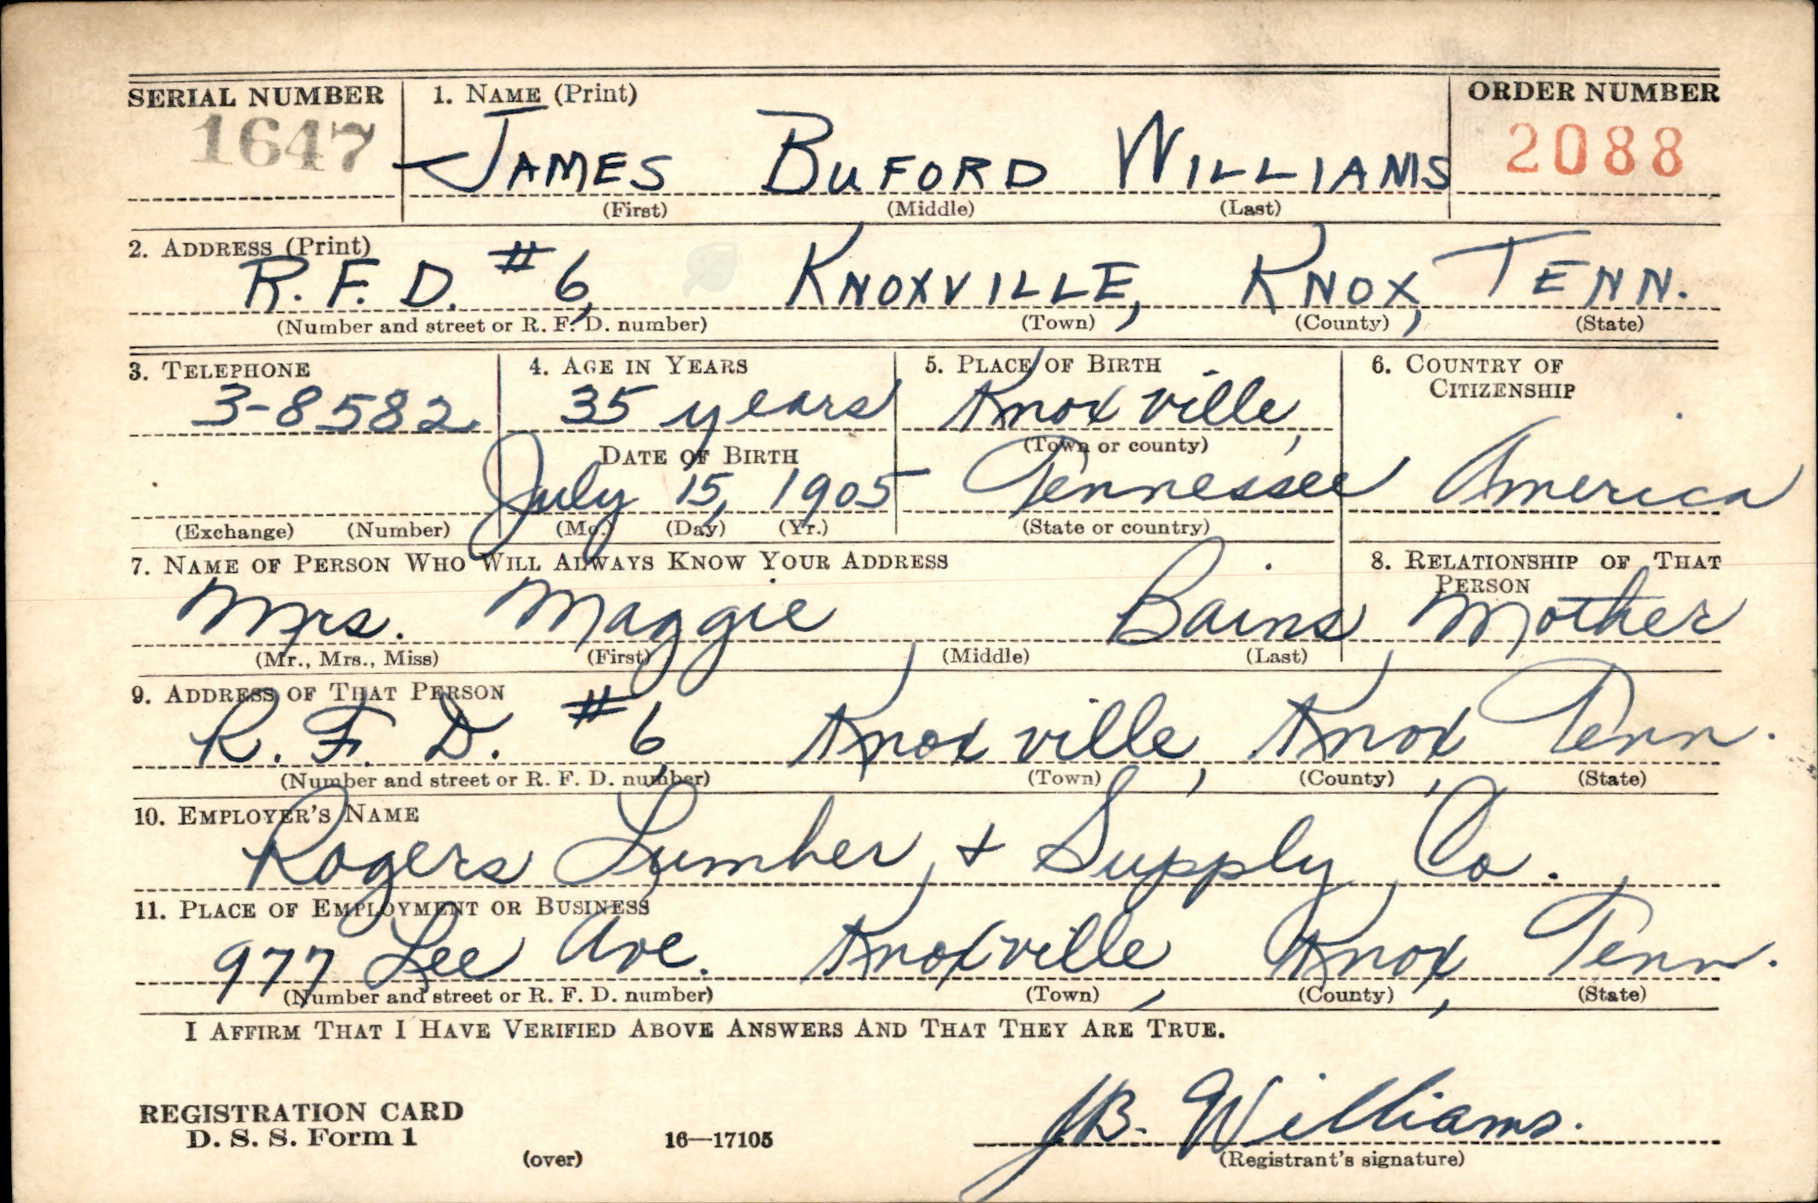 SERIAL NUMBER 1. NAME (Print) ORDER NUMBER
1647 JAMES BUFORD WILLIAMS 2088
(First) (Middle) (Last)
2. ADDRESS (Print)
R.F.D. #6, KNOXVILLE, KNOX, TENN.
(Number and street or R. F. D. number) (Town) (County) (State)
3. TELEPHONE 4. AGE IN YEARS 5. PLACE OF BIRTH 6. COUNTRY OF CITIZENSHIP
3-8582 35 years Knoxville,
DATE OF BIRTH (Town or county)
July 15, 1905 Tennessee America
(Exchange) (Number) (Mo.) (Day) (Yr.) (State or country)
7. NAME OF PERSON WHO WILL ALWAYS KNOW YOUR ADDRESS 8. RELATIONSHIP OF THAT PERSON
Mrs. Maggie Bains Mother
(Mr., Mrs., Miss) (First) (Middle) (Last)
9. ADDRESS OF THAT PERSON
R. F. D. #6, Knoxville, Knox, Tenn.
(Number and street or R. F. D. number) (Town) (County) (State)
10. EMPLOYER'S NAME
Rogers Lumber & Supply Co.
11. PLACE OF EMPLOYMENT OR BUSINESS
977 Lee Ave. Knoxville, Knox, Tenn.
(Number and street or R. F. D. number) (Town) (County) (State)
I AFFIRM THAT I HAVE VERIFIED ABOVE ANSWERS AND THAT THEY ARE TRUE.
REGISTRATION CARD
D. S. S. Form 1 16—17105 J.B. Williams.
(over) (Registrant's signature)